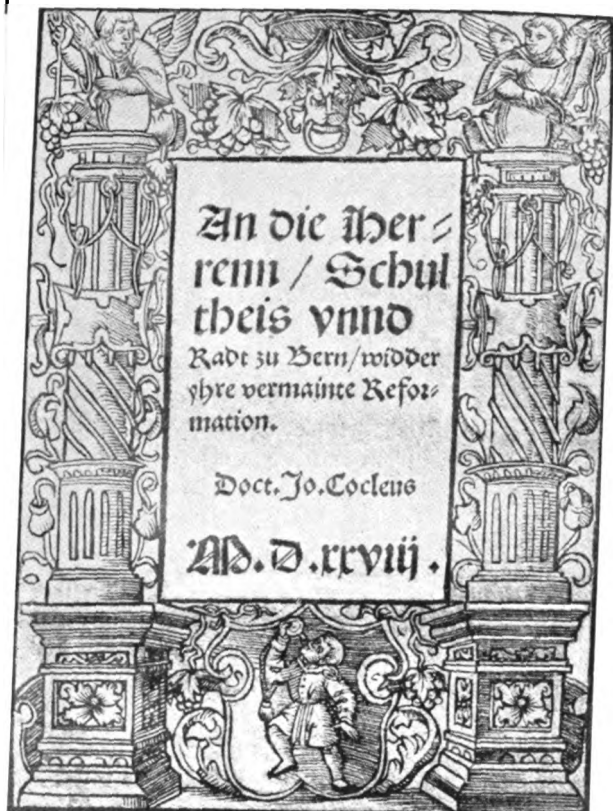 An die Her⸗
renn / Schul
theis vnnd
Radt zu Bern/widder
yhre vermainte Refor⸗
mation.
Doct. Jo. Cocleus
M. D. xxviij.